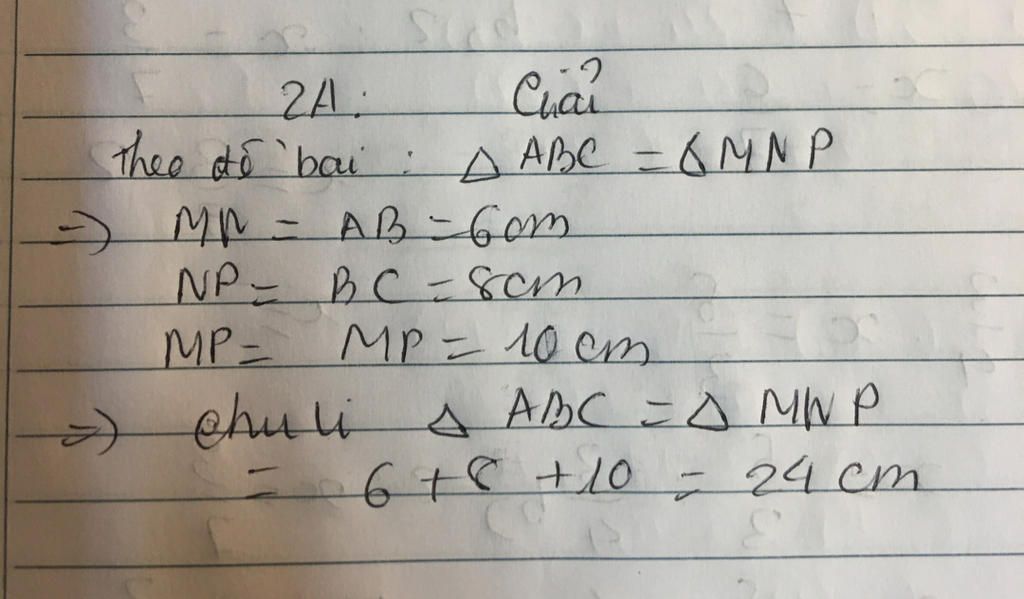 2A: Giải
theo đề bài : Δ ABC = Δ MNP
=> MN = AB = 6cm
NP = BC = 8cm
MP = MP = 10 cm
=> chu vi Δ ABC = Δ MNP
= 6 + 8 + 10 = 24 cm